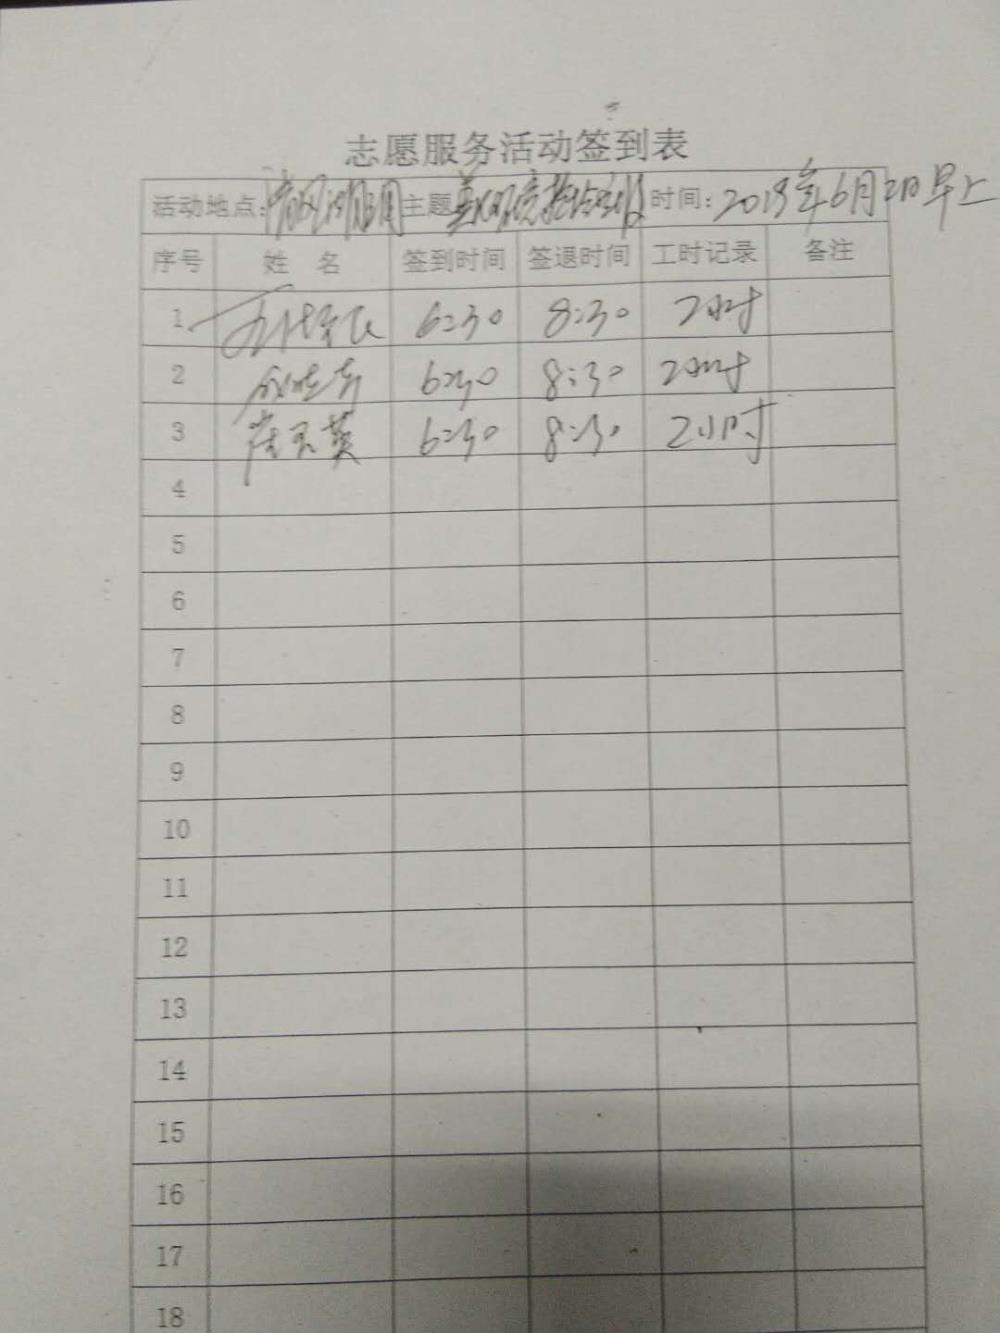 志愿服务活动签到表
活动地点: 主题 时间: 2019年6月2日早上
序号 姓 名 签到时间 签退时间 工时记录 备注
1 6:30 8:30 2小时
2 6:30 8:30 2小时
3 崔玉英 6:30 8:30 2小时
4
5
6
7
8
9
10
11
12
13
14
15
16
17
18